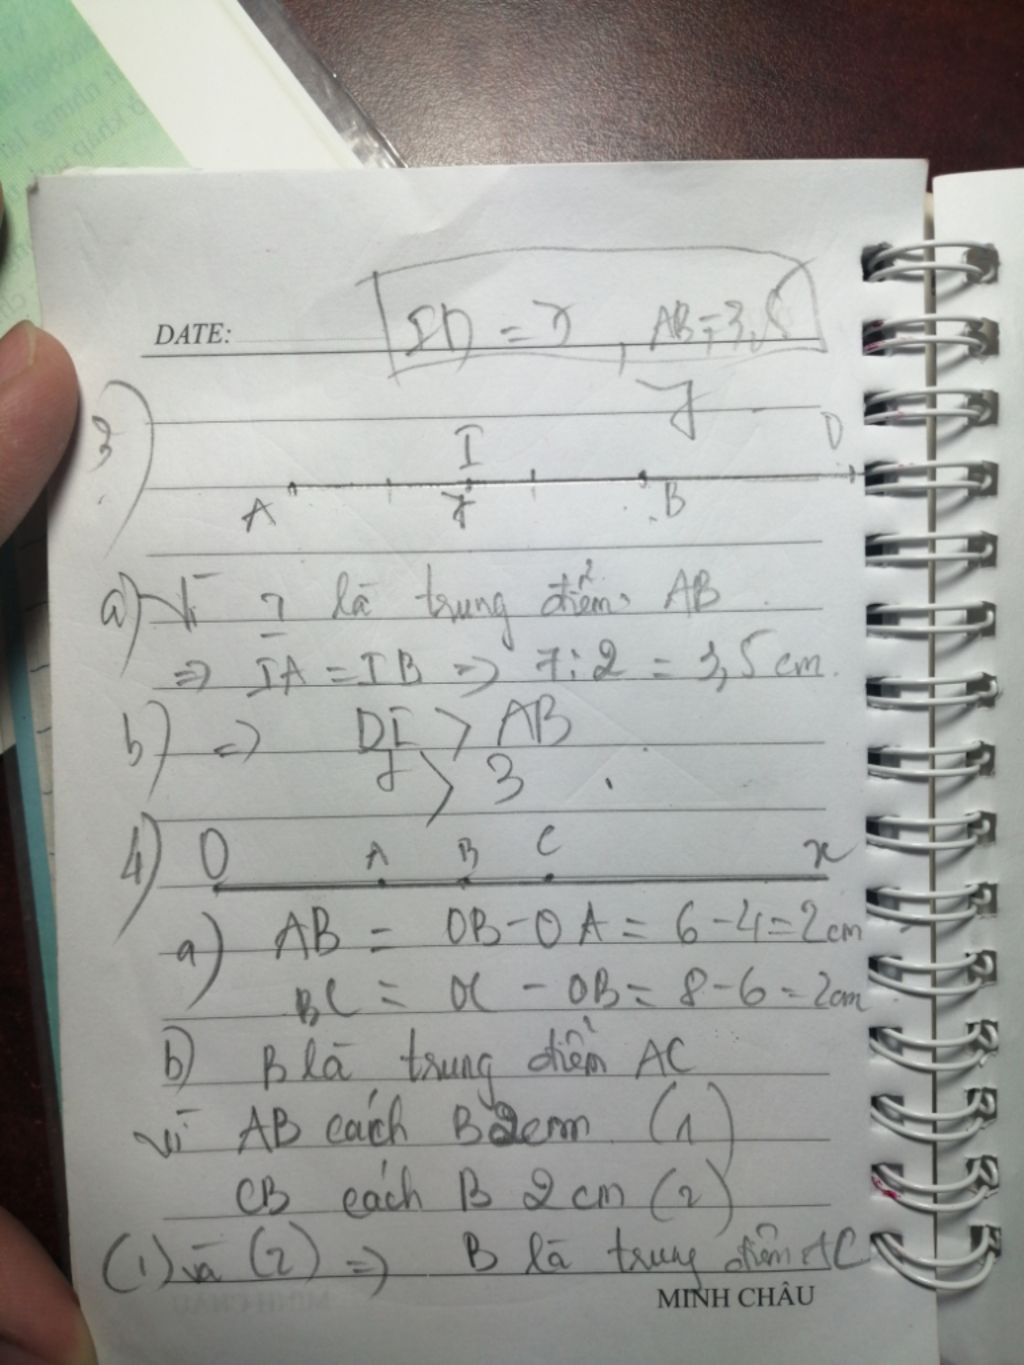 DATE:
ID = 7, AB = 3,5
7
3)
I
D
A
7
B
a) Vì I là trung điểm AB
=> IA = IB => 7:2 = 3,5 cm.
b) => DI > AB
7 > 3
4) O A B C x
a) AB = OB - OA = 6 - 4 = 2cm
BC = OC - OB = 8 - 6 = 2cm
b) B là trung điểm AC
vì AB cách B 2cm (1)
CB cách B 2cm (2)
(1) và (2) => B là trung điểm AC
MINH CHÂU